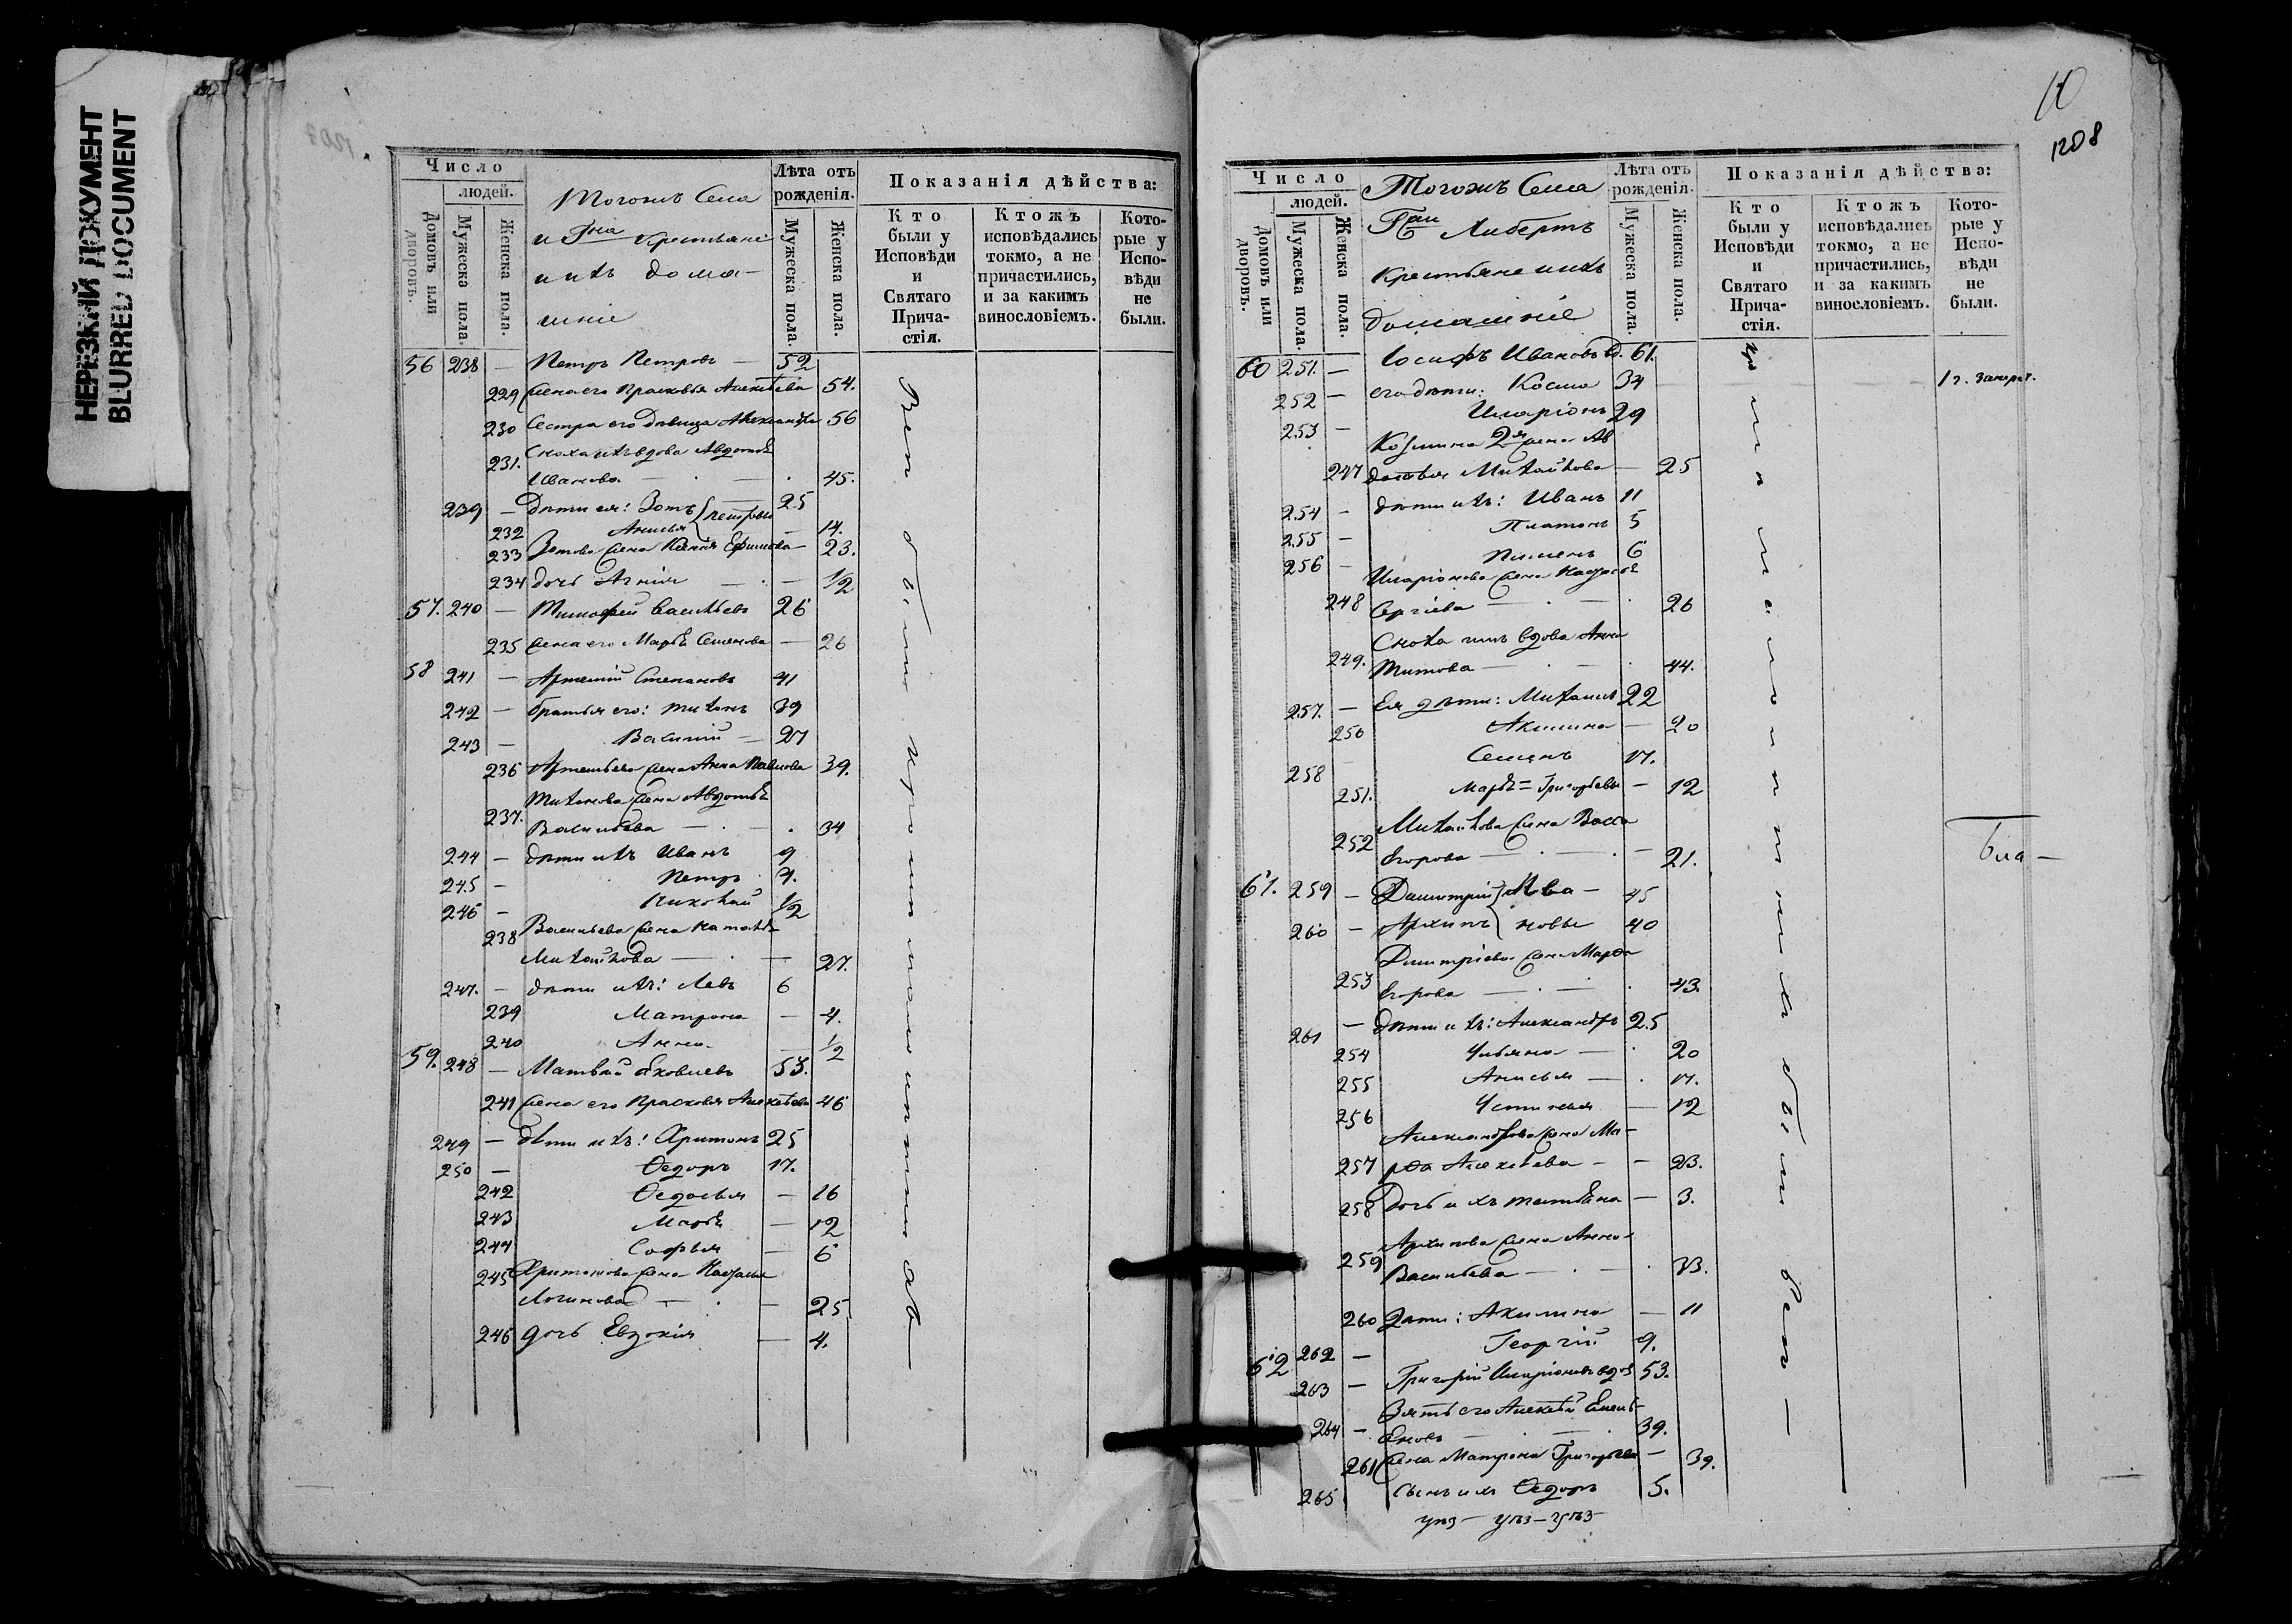 НЕРЕЗКИЙ ДОКУМЕНТ
BLURRED DOCUMENT
Число
людей.
Домовъ или дворовъ.
Мужеска пола.
Женска пола.
Тогожъ Села
и Гна крестьяне
и ихъ дома-
шніе
Лѣта отъ рожденія.
Мужеска пола.
Женска пола.
Показанія дѣйства:
Кто были у Исповѣди и Святаго Прича-стія.
Ктожъ исповѣдались токмо, а не причастились, и за какимъ винословіемъ.
Кото-рые у Испо-вѣди не были.
56 238 — Петръ Петровъ — 52
229 жена его Прасковья Алексѣева 54.
230 Сестра его девица Александра 56
231. Сноха ихъ вдова Авдотья
Иванова — . — . 45.
239 — Дѣти ея: Зотъ Петровы 25
232 Анисья — 14.
233 Зотова жена Ксенія Ефимова — 23.
234 дочь Агнія — . — 1/2
57. 240 — Тимофей Васильевъ 26
235 жена его Марья Семенова — 26
58 241 — Артемій Степановъ 41
242 — братья его: Тихонъ 39
243 — Василій — 27
236 Артемьева жена Анна Павлова 39.
Тихонова жена Авдотья
237. Васильева — . — . 34
244 — дѣти ихъ Иванъ 9
245 — Петръ 4.
246 — Николай 1/2
238 Васильева жена Наталья
Михайлова — . — 27.
247. — дѣти ихъ: Левъ 6
239 Матрона — 4.
240 Анна — 1/2
59. 248 — Матвѣй Яковлевъ 53.
241 жена его Прасковья Алексѣева 46
249 — дѣти ихъ: Харитонъ 25
250 — Ѳедоръ 17.
242 Ѳедосья — 16
243 Марья — 12
244 Софья — 6
245 Харитонова жена Настасья
Логинова — . — 25
246 дочь Евдокія — 4.
10
1208
Число
людей.
Домовъ или дворовъ.
Мужеска пола.
Женска пола.
Тогожъ Села
Гжи Либертъ
крестьяне и ихъ
домашніе
Лѣта отъ рожденія.
Мужеска пола.
Женска пола.
Показанія дѣйства:
Кто были у Исповѣди и Святаго Прича-стія.
Ктожъ исповѣдались токмо, а не причастились, и за какимъ винословіемъ.
Кото-рые у Испо-вѣди не были.
60 251. — Іосифъ Ивановъ вд. 61.
252 — его дѣти: Косма 34
253 — Иларіонъ 29
Козмина 2я жена Ав
247 дотья Михайлова — 25
254 — дѣти ихъ: Иванъ 11
255 — Платонъ 5
256 — Пименъ 6
Иларіонова жена Настасья
248 Сергіева — . — . 26
Сноха ихъ вдова Анна
249. Титова — . — . 44.
257. — Ея дѣти: Михаилъ 22
250 Акилина — 20
258 Семенъ 17.
251. Марья = Григорьевы — 12
Михайлова жена Васса
252 Егорова — . — . — 21.
61. 259 — Димитрій Ива — 45
260 — Архипъ новы 40
Димитріева жена Марѳа
253 Егорова — . — . 43.
261 — дѣти ихъ: Александръ 25
254 Ульяна — . 20
255 Анисья — . 17.
256 Устинья — 12
Александрова жена Ма-
257 рѳа Алексѣева — — 23.
258 Дочь ихъ Татьяна — 3.
Архипова жена Анна
259 Васильева — . — . 33.
260 дѣти: Акилина — 11
262 — Георгій 9.
62 263 — Григорій Иларіоновъ вдов 53.
Зять его Алексѣй Емель-
264 — яновъ — . — . 39.
261 жена Матрона Григорьева — 39.
265 Сынъ ихъ Ѳедоръ 5.